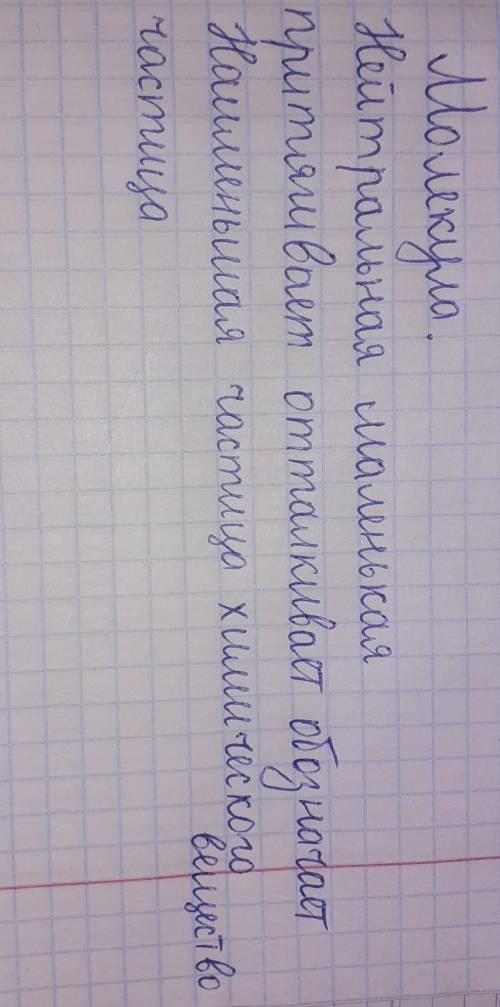 Молекула.
Нейтральная маленькая
притягивает отталкивает обозначает
Наименьшая частица химического
вещество
частица